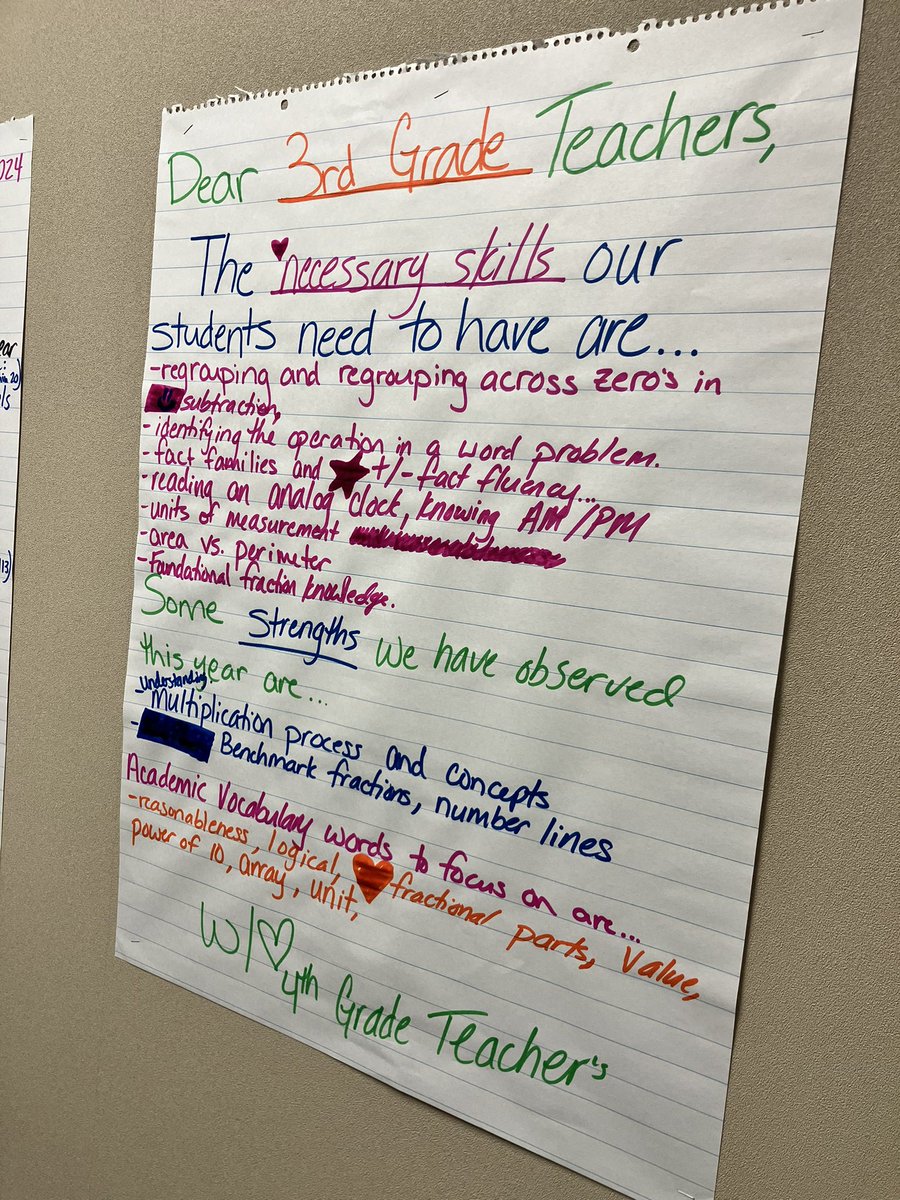 Dear 3rd Grade Teachers,
The necessary skills our
students need to have are...
-regrouping and regrouping across zero's in
subtraction,
-identifying the operation in a word problem.
-fact families and +/- fact fluency...
-reading an analog clock, knowing AM/PM
-units of measurement
-area vs. perimeter
-Foundational fraction knowledge.
Some Strengths we have observed
this year are...
understanding
-Multiplication process and concepts
- Benchmark fractions, number lines
Academic Vocabulary words to focus on are...
-reasonableness, logical, fractional parts, value,
power of 10, array, unit,
W/♡
4th Grade Teacher's